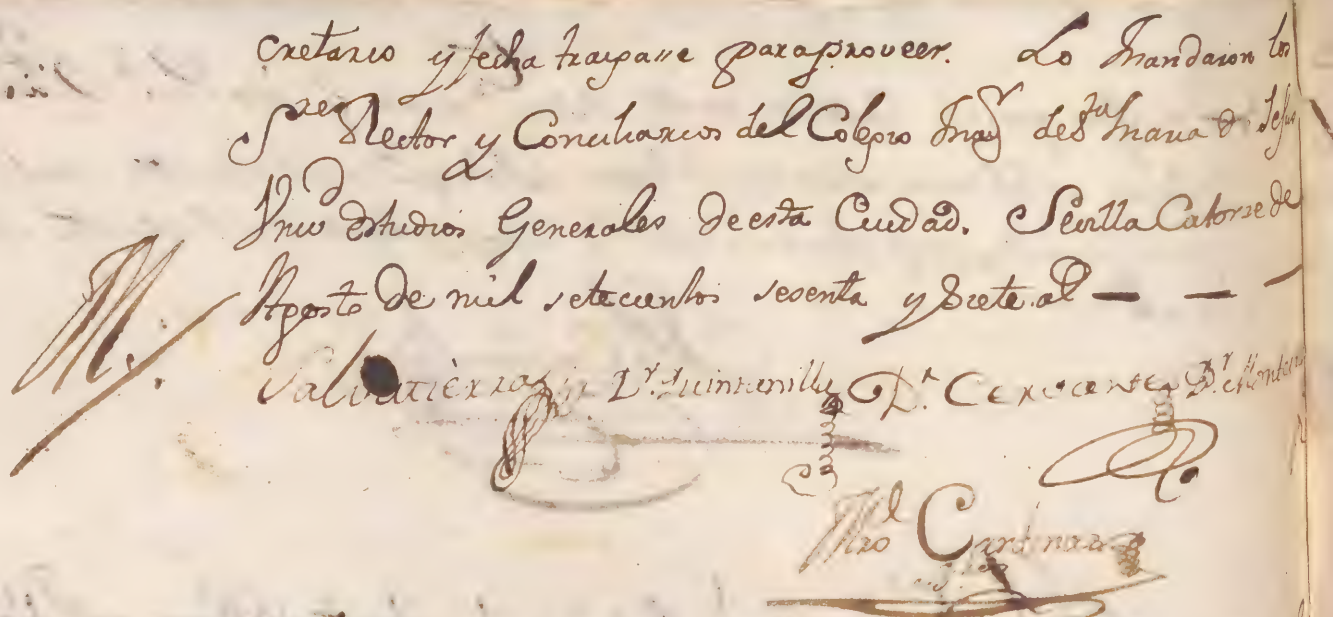 cretario y fecha traigasse para proveer. Lo mandaron los
S.res Rector y Conciliarios del Colegio may.r de S.ta Maria de Jesus
Vniv.d Estudios Generales de esta Ciudad. Sevilla Catorze de
Agosto de mil setecientos sesenta y siete a.s — — —
Salvatierra D.r Quintanilla D.r Cervantes D.r Montero
Cardenas